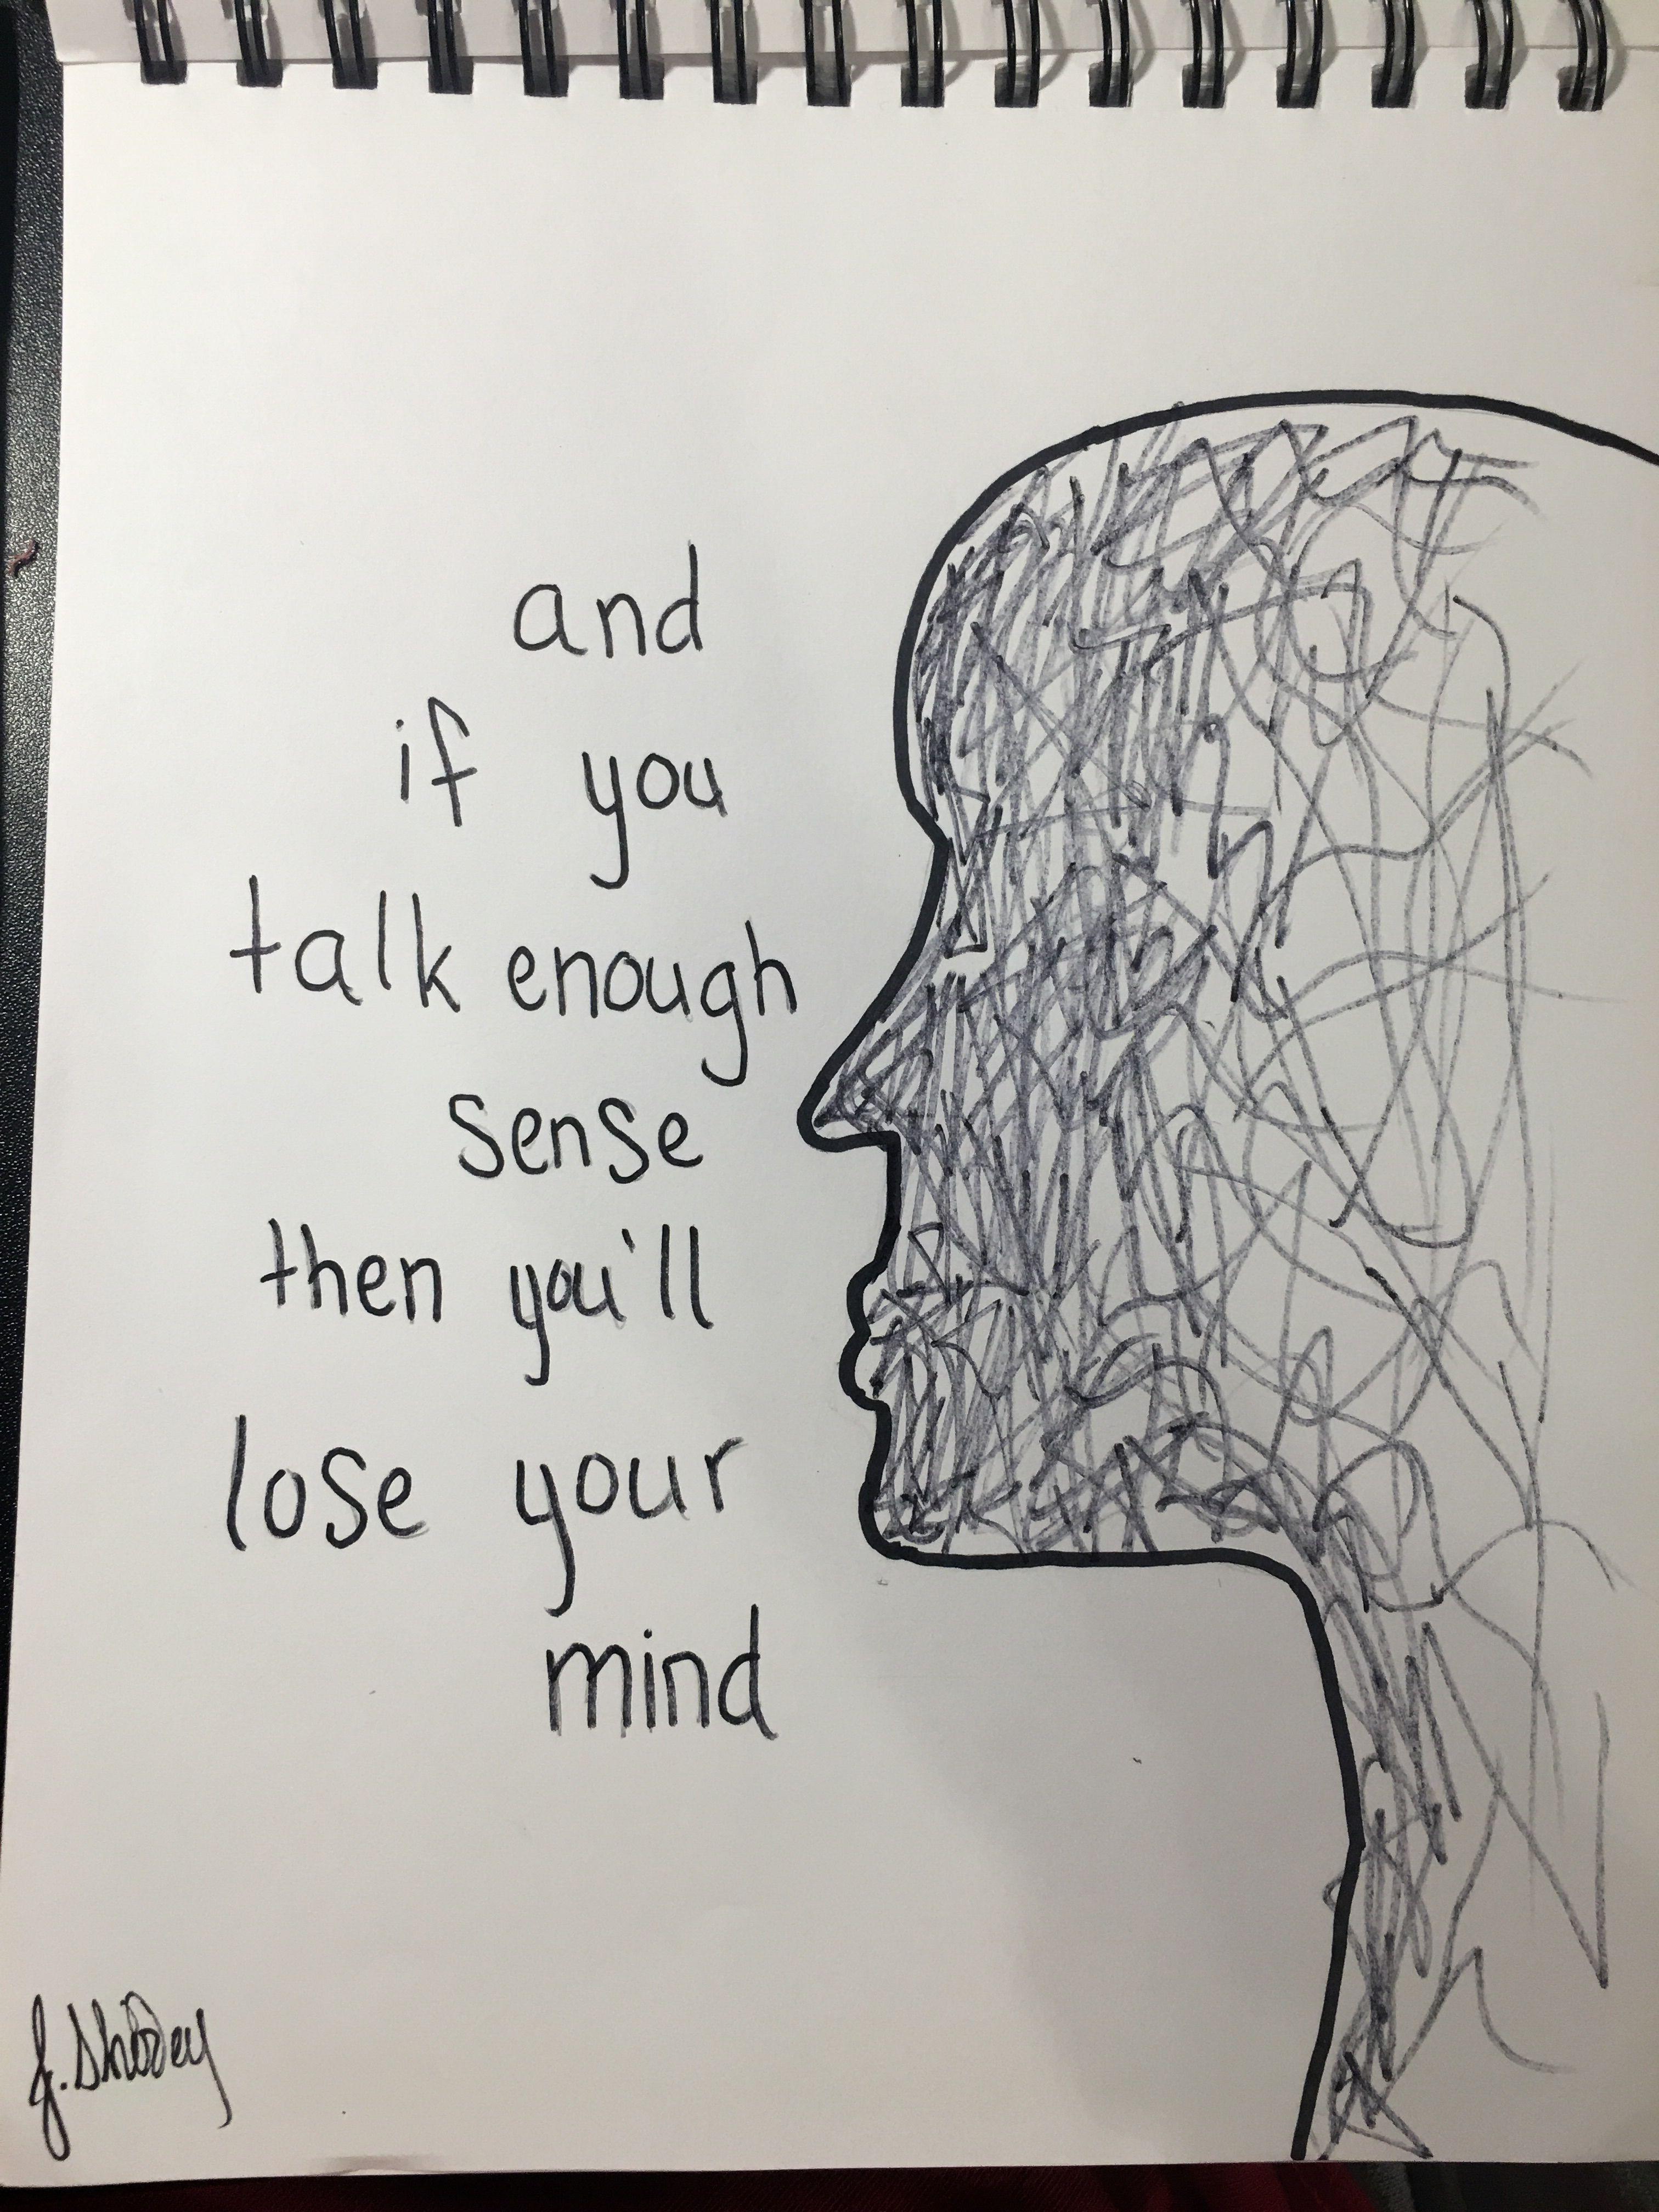 and
if you
talk enough
sense
then you'll
lose your
mind